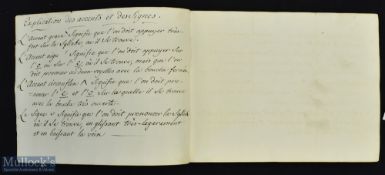 Explication des accents et des signes.
L'accent grave ` signifie que l'on doit appuyer très
fort sur la syllabe où il se trouve.
L'accent aigu ´ signifie que l'on doit appuyer sur
l'e où il se trouve, mais que l'on
doit prononcer ces deux voyelles avec la bouche fermée.
L'accent circonflexe ^ signifie que l'on doit pro-
noncer l'e et l'o sur laquelle il se trouve
avec la bouche très ouverte.
Le signe que l'on doit prononcer la syllabe
où il se trouve, en glissant très légèrement
et en baissant la voix
Mullock's